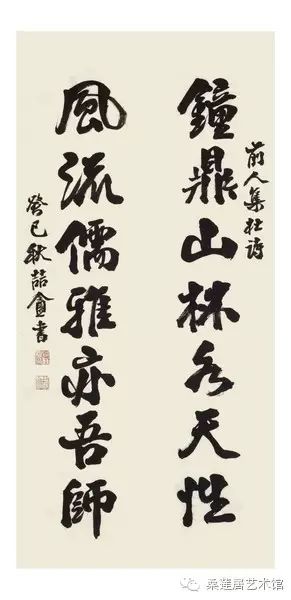 前人集杜詩
鐘鼎山林各天性
風流儒雅亦吾師
癸巳秋喆盦書
桑莲居艺术馆